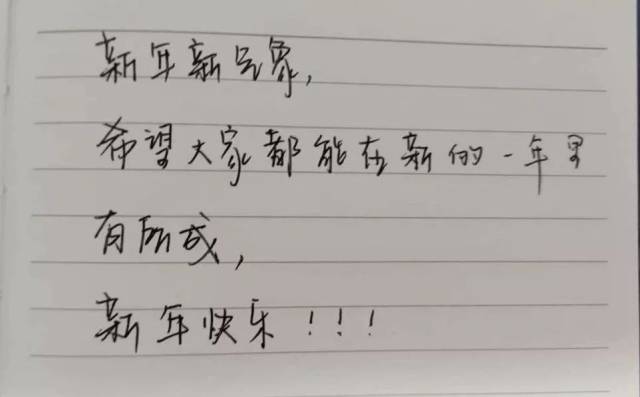 新年新气象，
希望大家都能在新的一年里
有所成，
新年快乐！！！